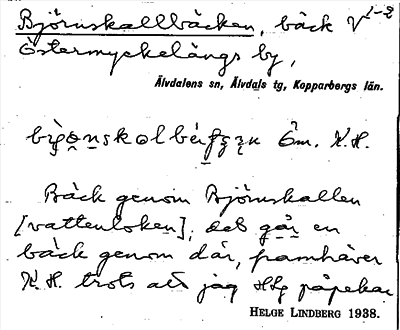 Björnskallbäcken, bäck V 1-2
Östermyckelängs by,
Älvdalens sn, Älvdals tg, Kopparbergs län.
Öm. K.H.
Bäck genom Björnskallen
[vattenloken]; det går en
bäck genom där, framhäver
K.H. trots att jag Hlg påpekar
HELGE LINDBERG 1938.